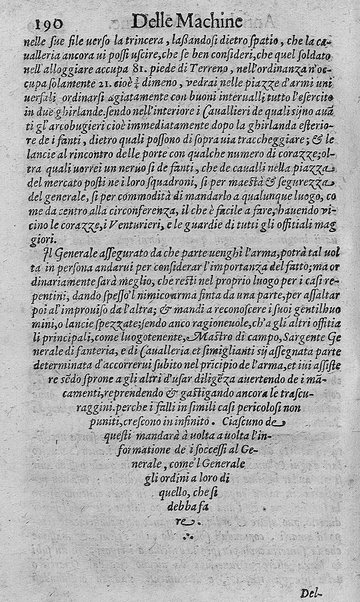 190 Delle Machine
nelle sue file verso la trincera, laßandosi dietro spatio, che la ca-
ualleria ancora ui possi uscire, che se ben consideri, che quel soldato
nell'alloggiare accupa 81. piede di Terreno, nell'ordinanza n'oc-
cupa solamente 21. cioè ¾ dimeno, vedrai nelle piazze d'armi uni
uersali ordinarsi agiatamente con buoni interualli tutto l'esercito
in due ghirlande. sendo nell'interiore i Cauallieri de quali sijno auā
ti gl'arcobugieri cioè immediatamente dopo la ghirlanda esterio-
re de i fanti, dietro quali possono di sopra uia traccheggiare; & le
lancie al rincontro delle porte con qualche numero di corazze; ol-
tra quali vorrei un neruo si de fanti, che de caualli nella piazza
del mercato posti ne i loro squadroni, si per maestà & segurezza
del generale, si per commodità di mandarlo a qualunque luogo, co
me da centro alla circonferenza, il che è facile a fare; hauendo vi-
cino le corazze, i Venturieri, e le guardie di tutti gli offitiali mag
giori.
Il Generale assegurato da che parte uenghi l'arma, potrà tal vol
ta in persona andarui per considerar l'importanza del fatto; ma or
dinariamente sarà meglio, che resti nel proprio luogo per i casi re-
pentini, dando spesso'l nimico arma finta da una parte, per assaltar
poi al'improuiso da l'altra; & mandi a reconoscere i suoi gentilhuo
mini, o lancie spezzate; sendo anco ragioneuole, ch'a gli altri offitia
li principali, come luogotenente, Mastro di campo, Sargente Ge
nerale di fanteria, e di Caualleria et simiglianti sij assegnata parte
determinata d'accorrerui subito nel pricipio de l'arma, et iui assiste
re sēdo sprone a gli altri d'usar diligēza auertendo de i mā-
camenti, reprendendo & gastigando ancora le trascu-
raggini. perche i falli in simili casi pericolosi non
puniti, crescono in infinito. Ciascuno de
questi mandarà à uolta a uolta l'in-
formatione de i soccessi al Ge-
nerale, come'l Generale
gli ordini a loro di
quello, che si
debba fa
re.
Del-